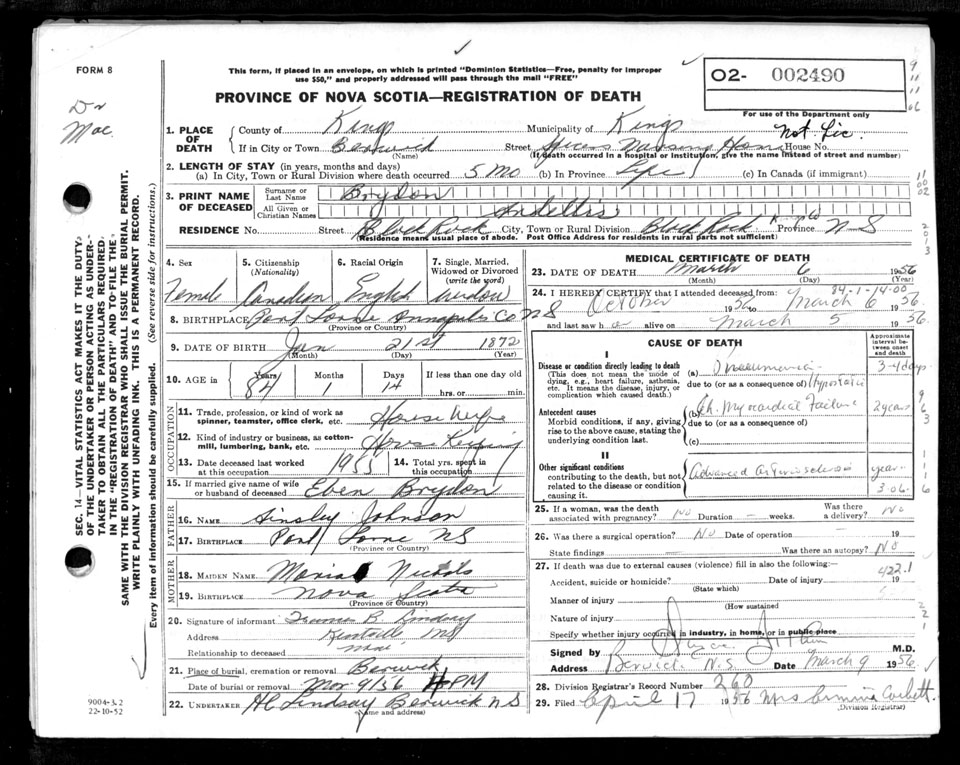 FORM 8
This form, if placed in an envelope, on which is printed "Dominion Statistics—Free, penalty for improper
use $50," and properly addressed will pass through the mail "FREE"
PROVINCE OF NOVA SCOTIA—REGISTRATION OF DEATH
O2- 002490
For use of the Department only
Dr
Mac
SEC. 14—VITAL STATISTICS ACT MAKES IT THE DUTY
OF THE UNDERTAKER OR PERSON ACTING AS UNDER-
TAKER TO OBTAIN ALL THE PARTICULARS REQUIRED
IN THE "REGISTRATION OF DEATH" AND TO FILE THE
SAME WITH THE DIVISION REGISTRAR WHO SHALL ISSUE THE BURIAL PERMIT.
WRITE PLAINLY WITH UNFADING INK. THIS IS A PERMANENT RECORD.
Every item of information should be carefully supplied. (See reverse side for instructions.)
1. PLACE OF DEATH
County of Kings Municipality of Kings Not Lic.
If in City or Town Berwick Street Nursing Home House No.
(Name) (If death occurred in a hospital or institution, give the name instead of street and number)
2. LENGTH OF STAY (in years, months and days)
(a) In City, Town or Rural Division where death occurred 5 Mo (b) In Province Life (c) In Canada (if immigrant)
3. PRINT NAME OF DECEASED
Surname or Last Name Brydon
All Given or Christian Names
RESIDENCE No. Street Black Rock City, Town or Rural Division Black Rock Kings Co Province N-S
(Residence means usual place of abode. Post Office Address for residents in rural parts not sufficient)
4. Sex Female
5. Citizenship (Nationality) Canadian
6. Racial Origin English
7. Single, Married, Widowed or Divorced (write the word) Widow
8. BIRTHPLACE Port Lorne Annapolis Co NS
(Province or Country)
9. DATE OF BIRTH Jan 21st 1872
(Month) (Day) (Year)
10. AGE in Years 84 Months 1 Days 14 If less than one day old
hrs. or min.
OCCUPATION
11. Trade, profession, or kind of work as spinner, teamster, office clerk, etc. House Wife
12. Kind of industry or business, as cotton-mill, lumbering, bank, etc. House Keeping
13. Date deceased last worked at this occupation 1955 14. Total yrs. spent in this occupation
15. If married give name of wife or husband of deceased Eben Brydon
FATHER
16. NAME Ainsley Johnson
17. BIRTHPLACE Port Lorne NS
(Province or Country)
MOTHER
18. MAIDEN NAME Maria Nichols
19. BIRTHPLACE Nova Scotia
(Province or Country)
20. Signature of informant B Lindsay
Address Kentville NS
Relationship to deceased
21. Place of burial, cremation or removal Berwick
Date of burial or removal Mar 9/56 4 PM
22. UNDERTAKER HC Lindsay Berwick NS
(Name and address)
9004-3.2
22-10-52
MEDICAL CERTIFICATE OF DEATH
23. DATE OF DEATH March 6 1956
(Month) (Day) (Year)
84-1-14-00
24. I HEREBY CERTIFY that I attended deceased from
October 1956 March 6 1956
and last saw h alive on March 5 1956
CAUSE OF DEATH
Approximate interval between onset and death
I
Disease or condition directly leading to death
(This does not mean the mode of dying, e.g., heart failure, asthenia, etc. It means the disease, injury, or complication which caused death.)
(a) Pneumonia 3-4 days
due to (or as a consequence of) Hypostatic
Antecedent causes
Morbid conditions, if any, giving rise to the above cause, stating the underlying condition last.
(b) Ch. Myocardial Failure 2 years
due to (or as a consequence of)
(c)
II
Other significant conditions
contributing to the death, but not related to the disease or condition causing it.
Advanced arteriosclerosis years
306.
25. If a woman, was the death associated with pregnancy? No Duration — weeks. Was there a delivery? No
26. Was there a surgical operation? No Date of operation — 19
State findings — Was there an autopsy? No
27. If death was due to external causes (violence) fill in also the following:—
422.1
Accident, suicide or homicide? Date of injury 19
(State which)
Manner of injury
(How sustained)
Nature of injury
Specify whether injury occurred in industry, in home, or in public place
Signed by M.D.
Address Berwick N.S Date March 9 1956
28. Division Registrar's Record Number 260
29. Filed April 17 1956 Mrs Corbett
(Division Registrar)